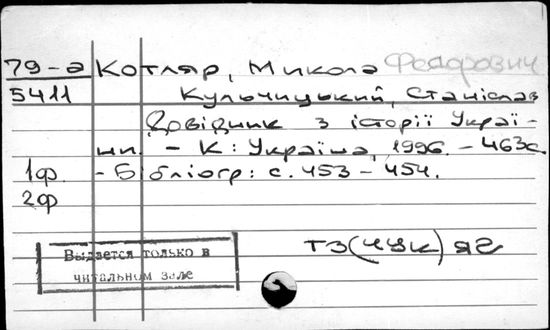 79-а Котляр, Микола Федорович
5411 Кульчицький, Станіслав
Довідник з історії Украї-
ни. - К: Україна, 1996. - 463с.
1ф - Бібліогр: с. 453 - 454.
2ф
ТЗ(4УК) я2
Выдается только в
читальном зале